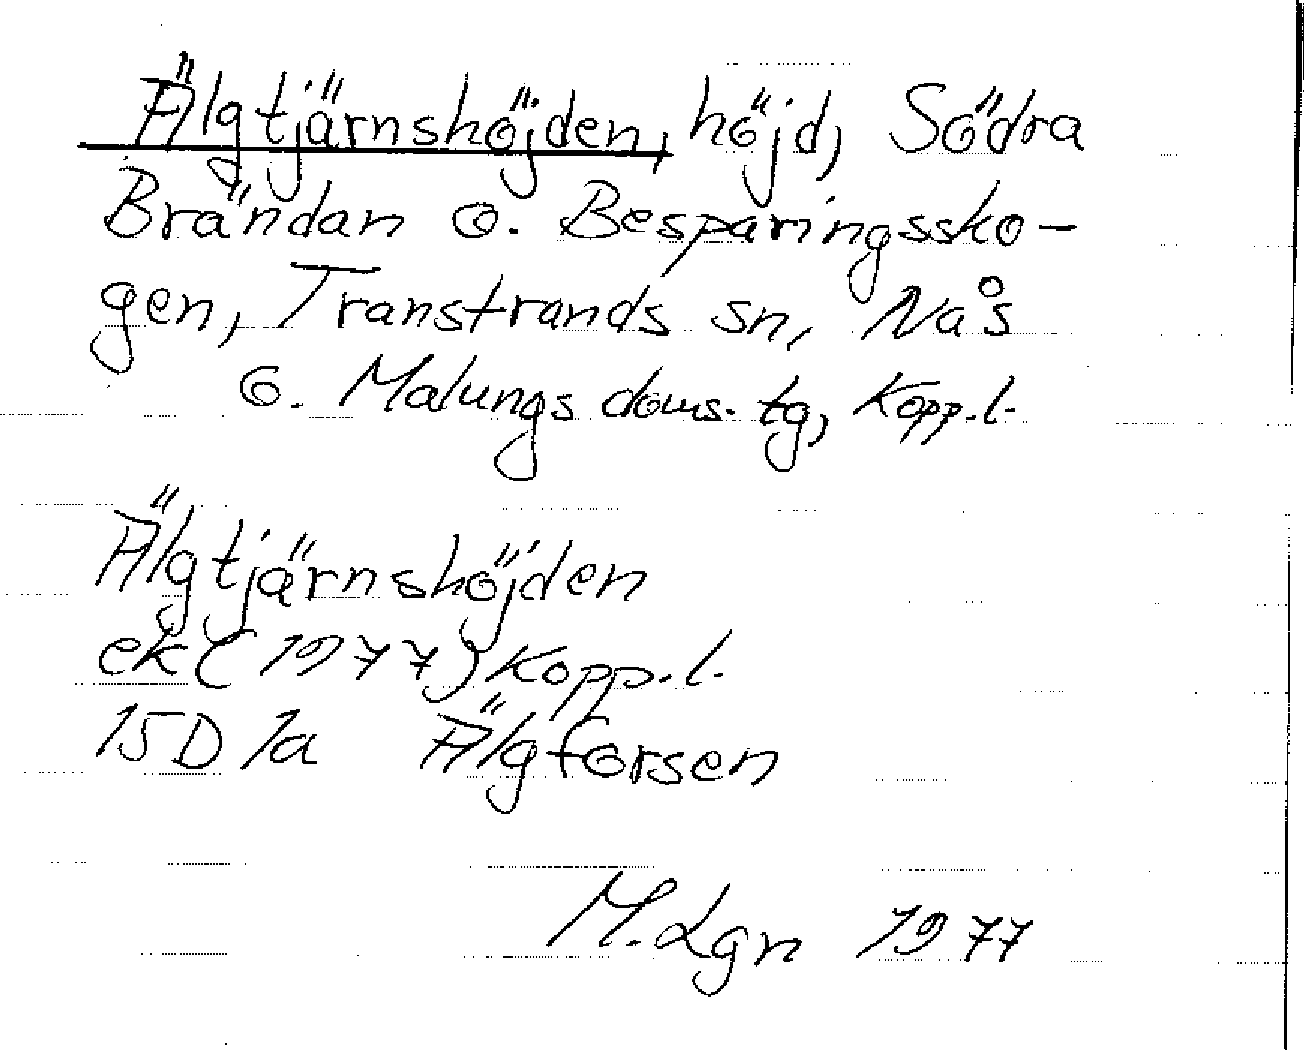 Älgtjärnshöjden, höjd, Södra
Brändan o. Besparingssko-
gen, Transtrands sn, Nås
o. Malungs doms. tg, Kopp.l.
Älgtjärnshöjden
ek (1977) Kopp.l.
15D 1a Älgforsen
M. Lgn 1977